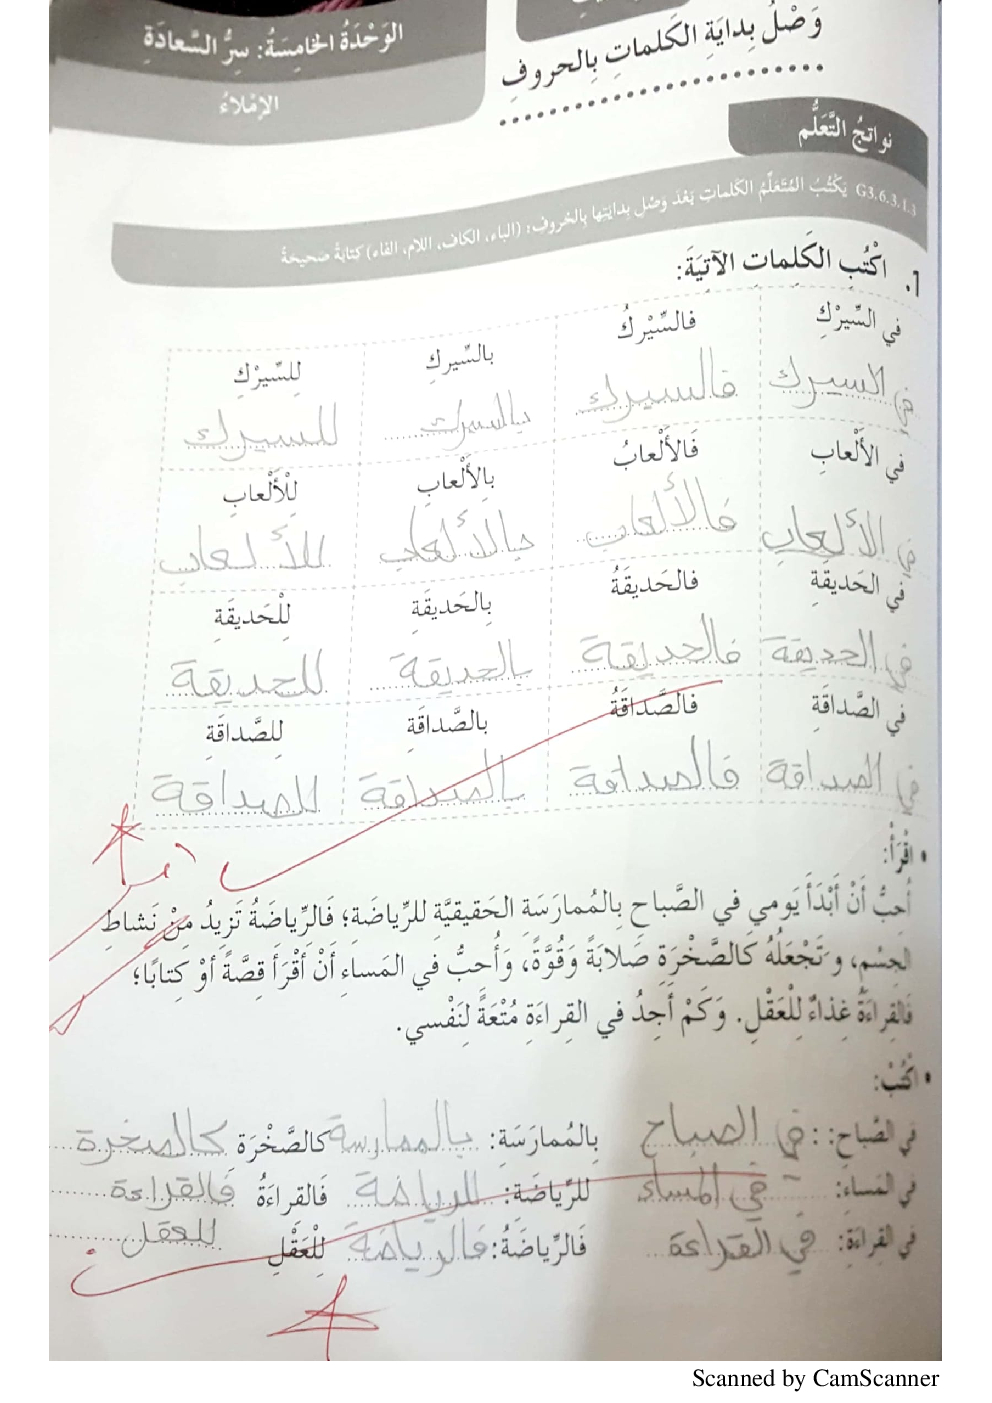 وَصْلُ بِدايَةِ الكَلِماتِ بِالحروفِ
الوَحْدَةُ الخامِسَةُ: سِرُّ السَّعادَةِ
الإِمْلاءُ
نواتجُ التَّعَلُّمِ
G3.6.3.1.3 يَكْتُبُ المُتَعَلِّمُ الكَلِماتِ بَعْدَ وَصْلِ بِدايَتِها بِالحُروفِ: (الباء، الكاف، اللام، الفاء) كِتابَةً صَحيحَةً
1. اكْتُبِ الكَلِماتِ الآتِيَةَ:
في السِّيرْكِ فَالسِّيْرْكُ بالسِّيركِ لِلسِّيْرْكِ
في السيرك فالسيرك بالسرك للسيرك
في الأَلْعابِ فَالأَلْعابُ بِالأَلْعابِ لِلْأَلْعابِ
في الألعاب فالألعاب بالألعاب للألعاب
في الحَديقَةِ فالحَديقَةُ بِالحَديقَةِ لِلْحَديقَةِ
في الحديقة فالحديقة بالحديقة للحديقة
في الصَّداقَةِ فالصَّداقَةُ بالصَّداقَةِ لِلصَّداقَةِ
في الصداقة فالصداقة بالصداقة للصداقة
• اقْرَأْ:
أُحِبُّ أَنْ أَبْدَأَ يَومي في الصَّباحِ بِالمُمارَسَةِ الحَقيقِيَّةِ للرِّياضَةِ؛ فَالرِّياضَةُ تَزيدُ مِنْ نَشاطِ
الجِسْمِ، وَتَجْعَلُهُ كَالصَّخْرَةِ صَلابَةً وَقُوَّةً، وَأُحِبُّ في المَساءِ أَنْ أَقْرَأَ قِصَّةً أوْ كِتابًا؛
فَالقِراءَةُ غِذاءٌ لِلْعَقْلِ. وَكَمْ أَجِدُ في القِراءَةِ مُتْعَةً لِنَفْسي.
• اكْتُبْ:
في الصَّباحِ: : في الصباح بِالمُمارَسَةِ: بالممارسة كالصَّخْرَة كالصخرة
في المَساءِ: في المساء للرِّياضَةِ: للرياضة فَالقراءَةُ فالقراءة
في القِراءَةِ: في القراءة فَالرِّياضَةُ: فالرياضة لِلْعَقْلِ للعقل
Scanned by CamScanner